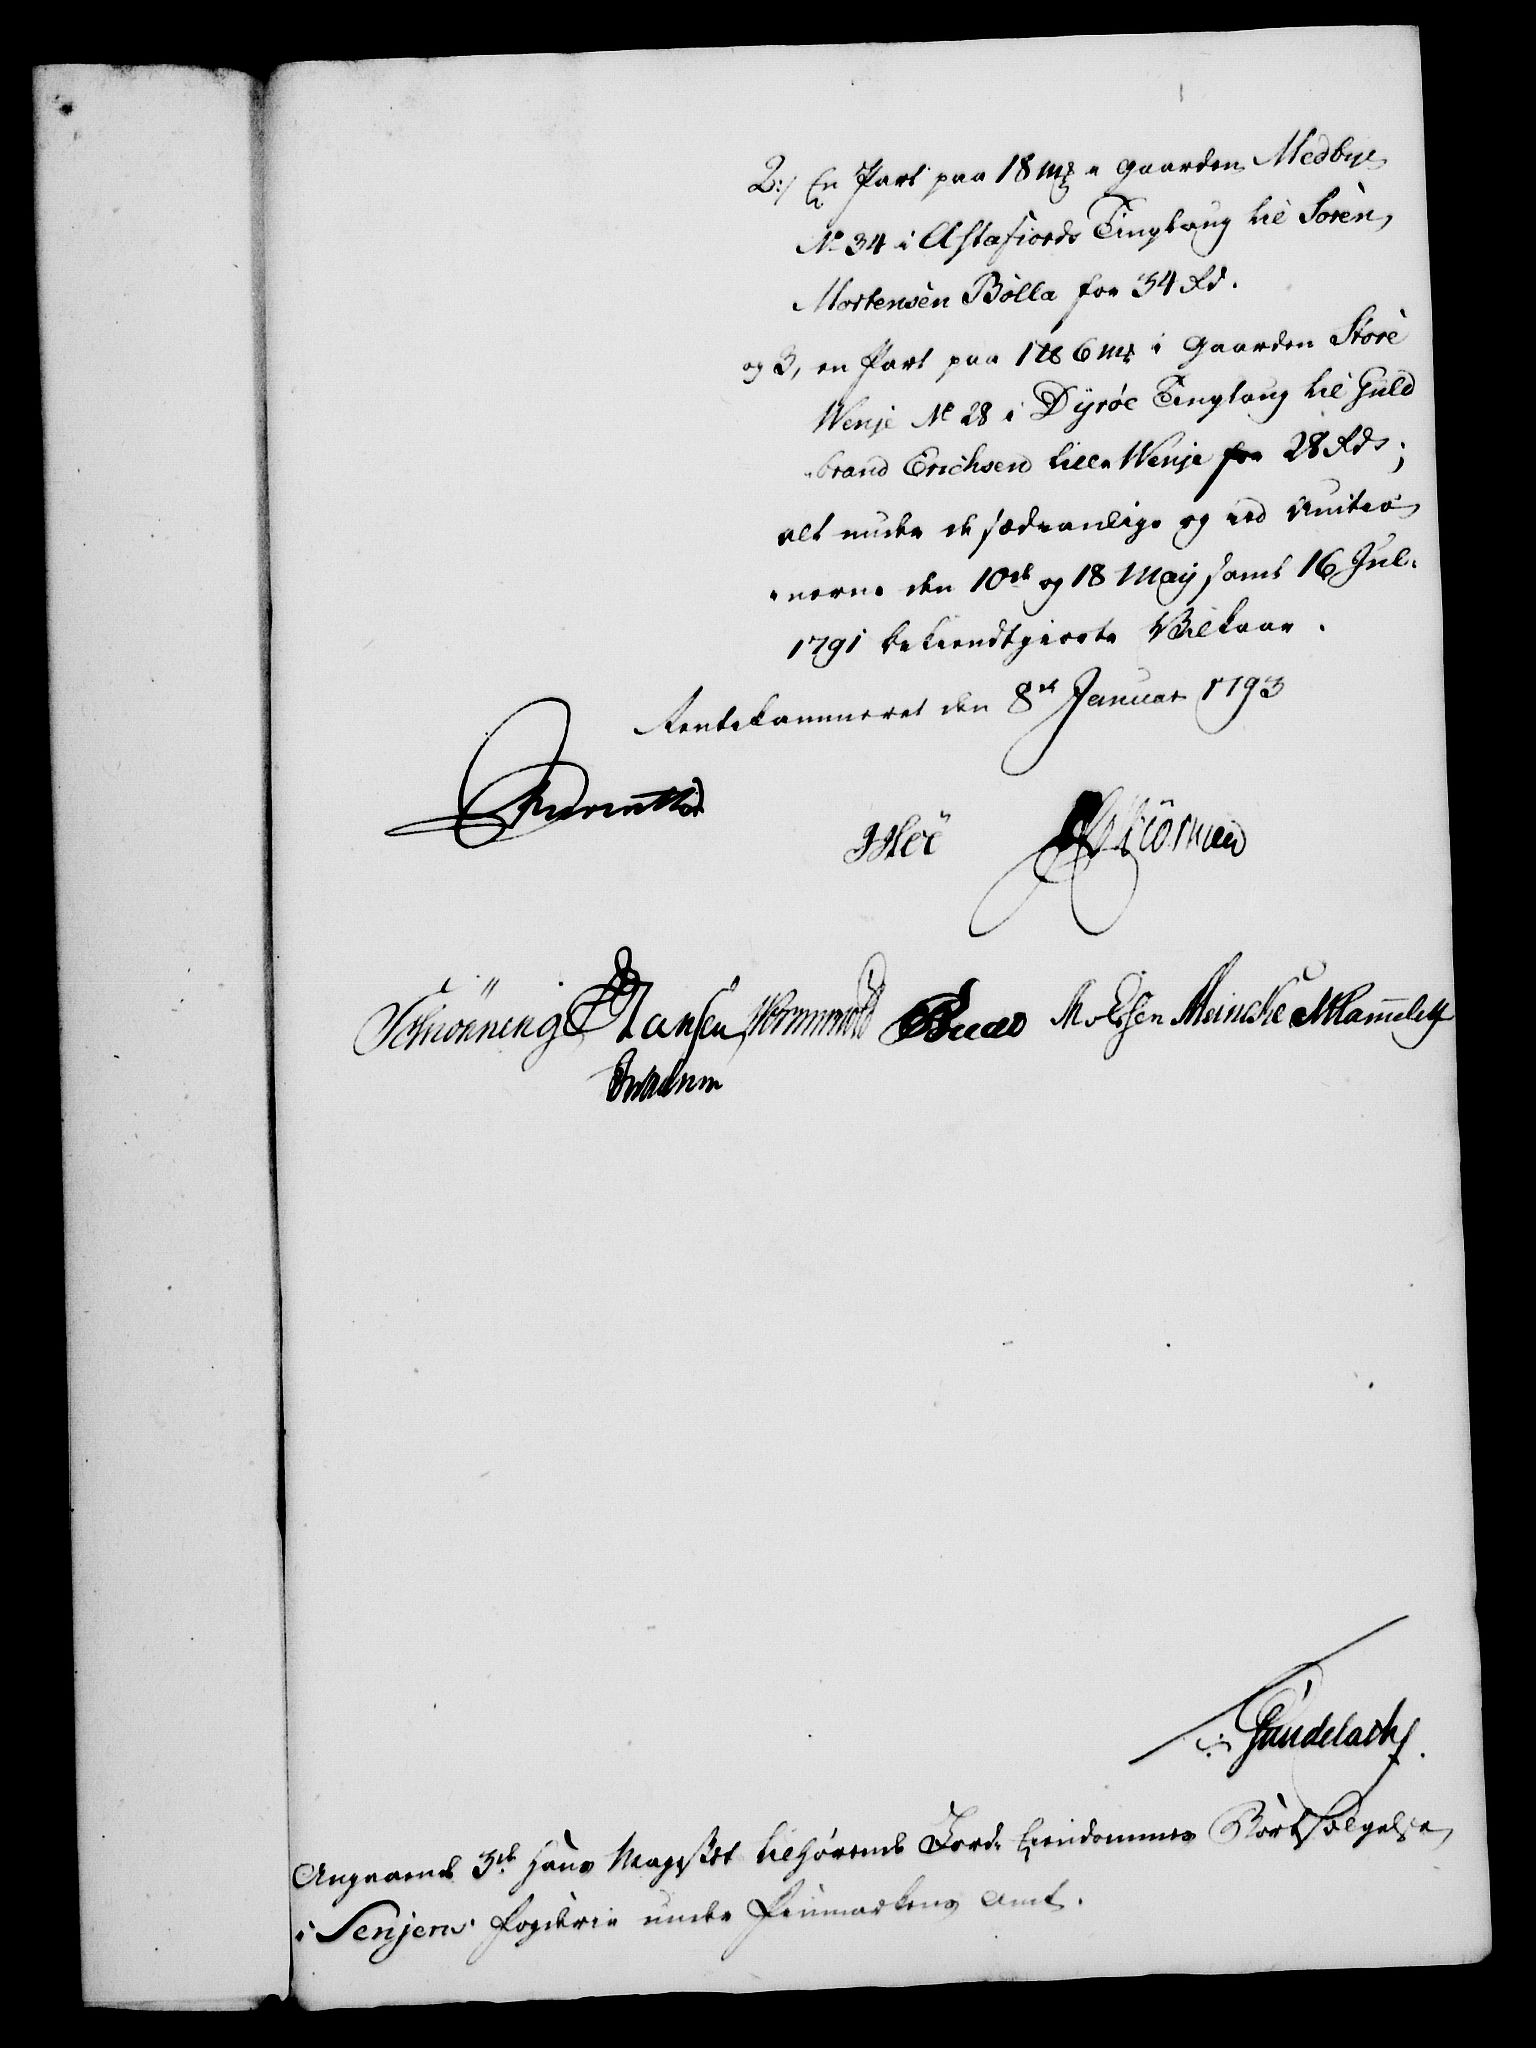 2:/ En Part paa 18 mk i Gaarden Medbye
No 34 i Astafiords Tinglaug til Sören
Mortensen Bölla for 34 Rd.
og 3, en Part paa 1 ℔ 6 mk i Gaarden Störe
Wenje No 28 i Dyröe Tinglaug til Guld
brand Erichsen lille Wenje for 28 Rds;
alt under de sædvanlige og ved Auctio
nerne den 10de og 18 May samt 16 Jul.
1791 bekiendtgiorte Vilkaar.
Rentekammeret den 8de Januar 1793
Schiönning Hansen Wormskiold Buch Molssen Meincke MHammeleff
Gundelach
Angaaende 3de Hans Majestet tilhørende Jorde Eiendommes Bortsælgelse
i Senjens Fogderie under Finmarkens Amt.